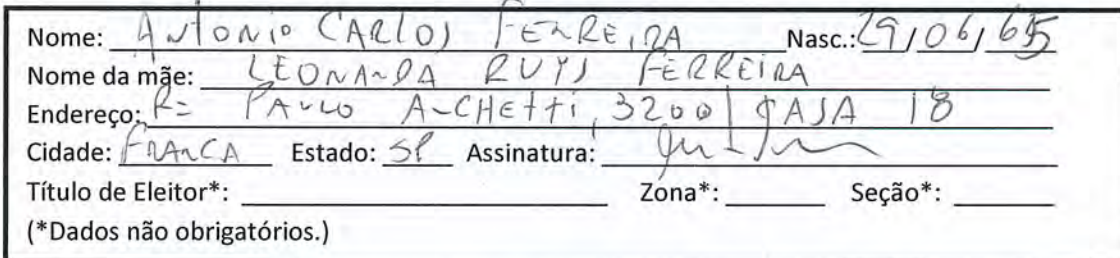 Nome: ANTONIO CARLOS FERREIRA Nasc.: 29/06/65
Nome da mãe: LEONARDA RUYS FERREIRA
Endereço: R= PAULO ARCHETTI, 3200 CASA 18
Cidade: FRANCA Estado: SP Assinatura:
Título de Eleitor*: Zona*: Seção*:
(*Dados não obrigatórios.)